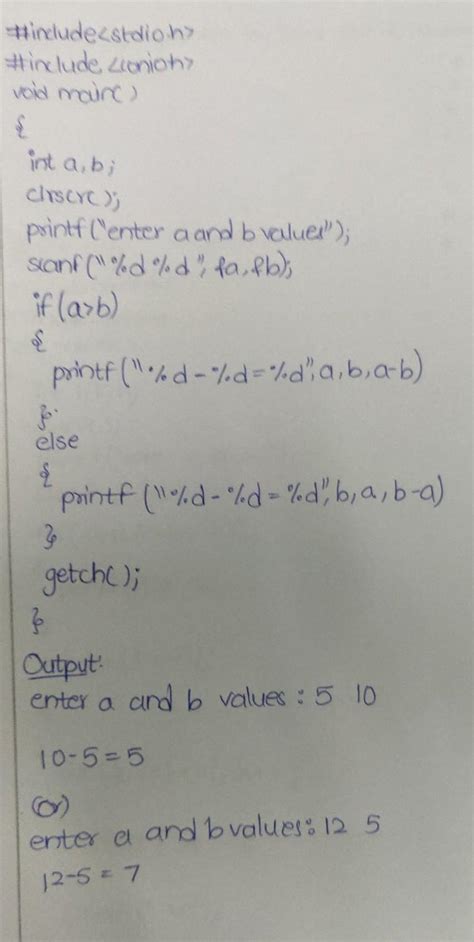 #include<stdio.h>
#include<conio.h>
void main()
{
int a, b;
clrscr();
printf("enter a and b values");
scanf("%d %d", &a, &b);
if(a>b)
{
printf("%d - %d = %d", a, b, a-b)
}
else
{
printf("%d - %d = %d", b, a, b-a)
}
getch();
}
Output:
enter a and b values : 5 10
10-5 = 5
(or)
enter a and b values: 12 5
12-5 = 7